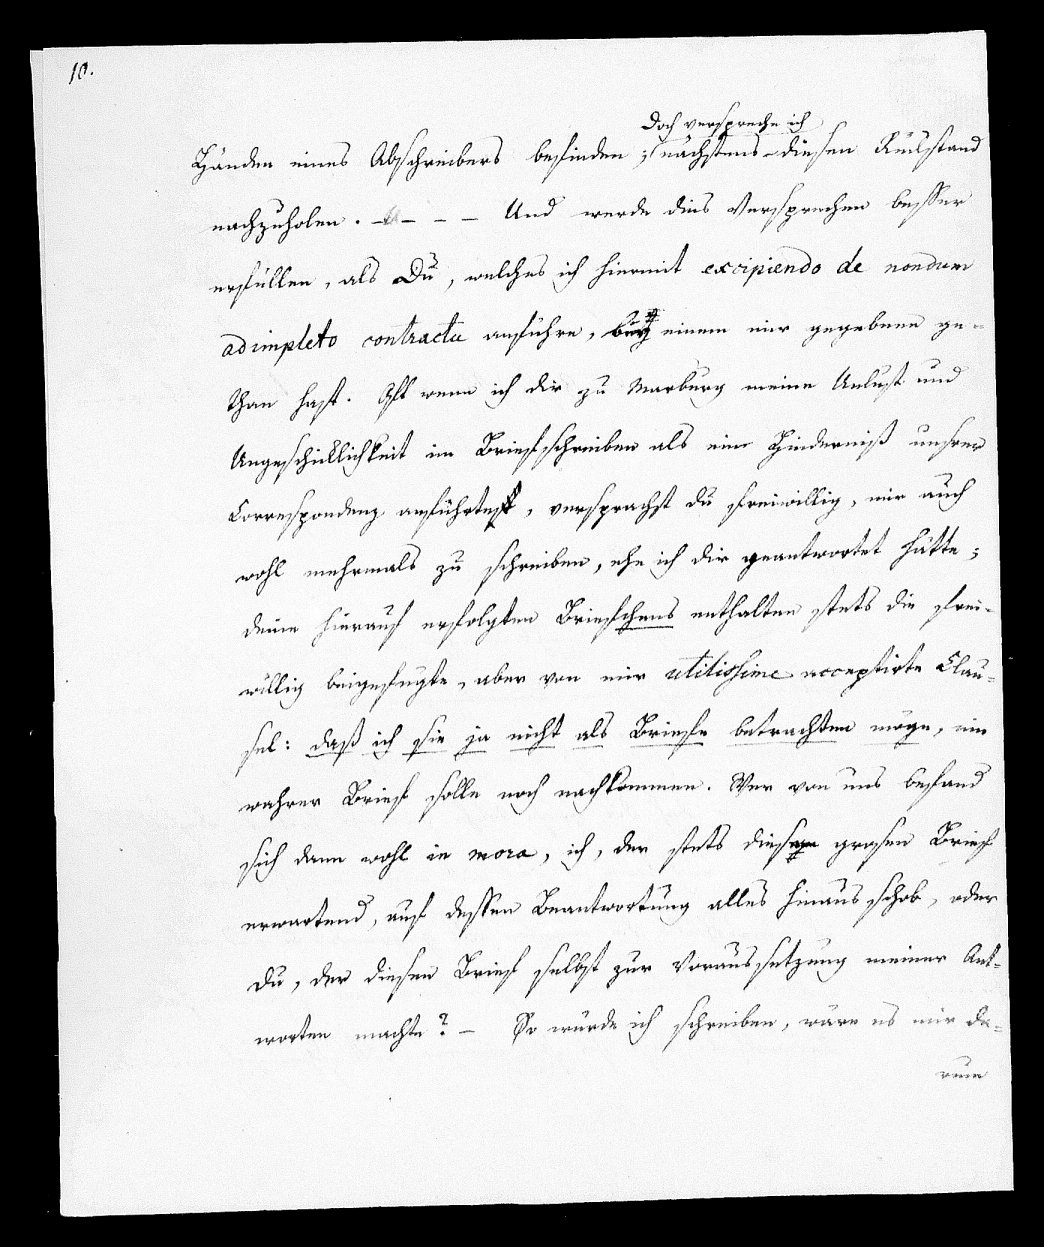 10.
Doch verspreche ich
Händen eines Abschreibers befinden; nächstens diesen Rückstand
nachzuholen. – – – – Und werde dies Versprechen besser
erfüllen, als Du, welches ich hiermit excipiendo de nondum
adimpleto contractu anführe, bey einem mir gegebene ge-
than hast. Oft wenn ich dir zu Marburg meine Unlust und
Ungeschicklichkeit im Briefschreiben als ein Hinderniß unsrer
Correspondenz anführte, versprachst du freiwillig, mir auch
wohl mehrmals zu schreiben, ehe ich dir geantwortet hätte;
deine hierauf erfolgten Briefchens enthalten stets die frei-
willig beigefügte, aber von mir utilissime acceptirte Clau-
sel: daß ich sie ja nicht als Briefe betrachten möge, ein
wahrer Brief solle noch nachkommen. Wer von uns befand
sich dann wohl in mora, ich, der stets diesen grosen Brief
erwartend, auf dessen Beantwortung alles hinaus schob, oder
du, der diesen Brief selbst zur Voraussetzung meiner Ant-
worten machte? – So würde ich schreiben, wäre es mir da-
rum